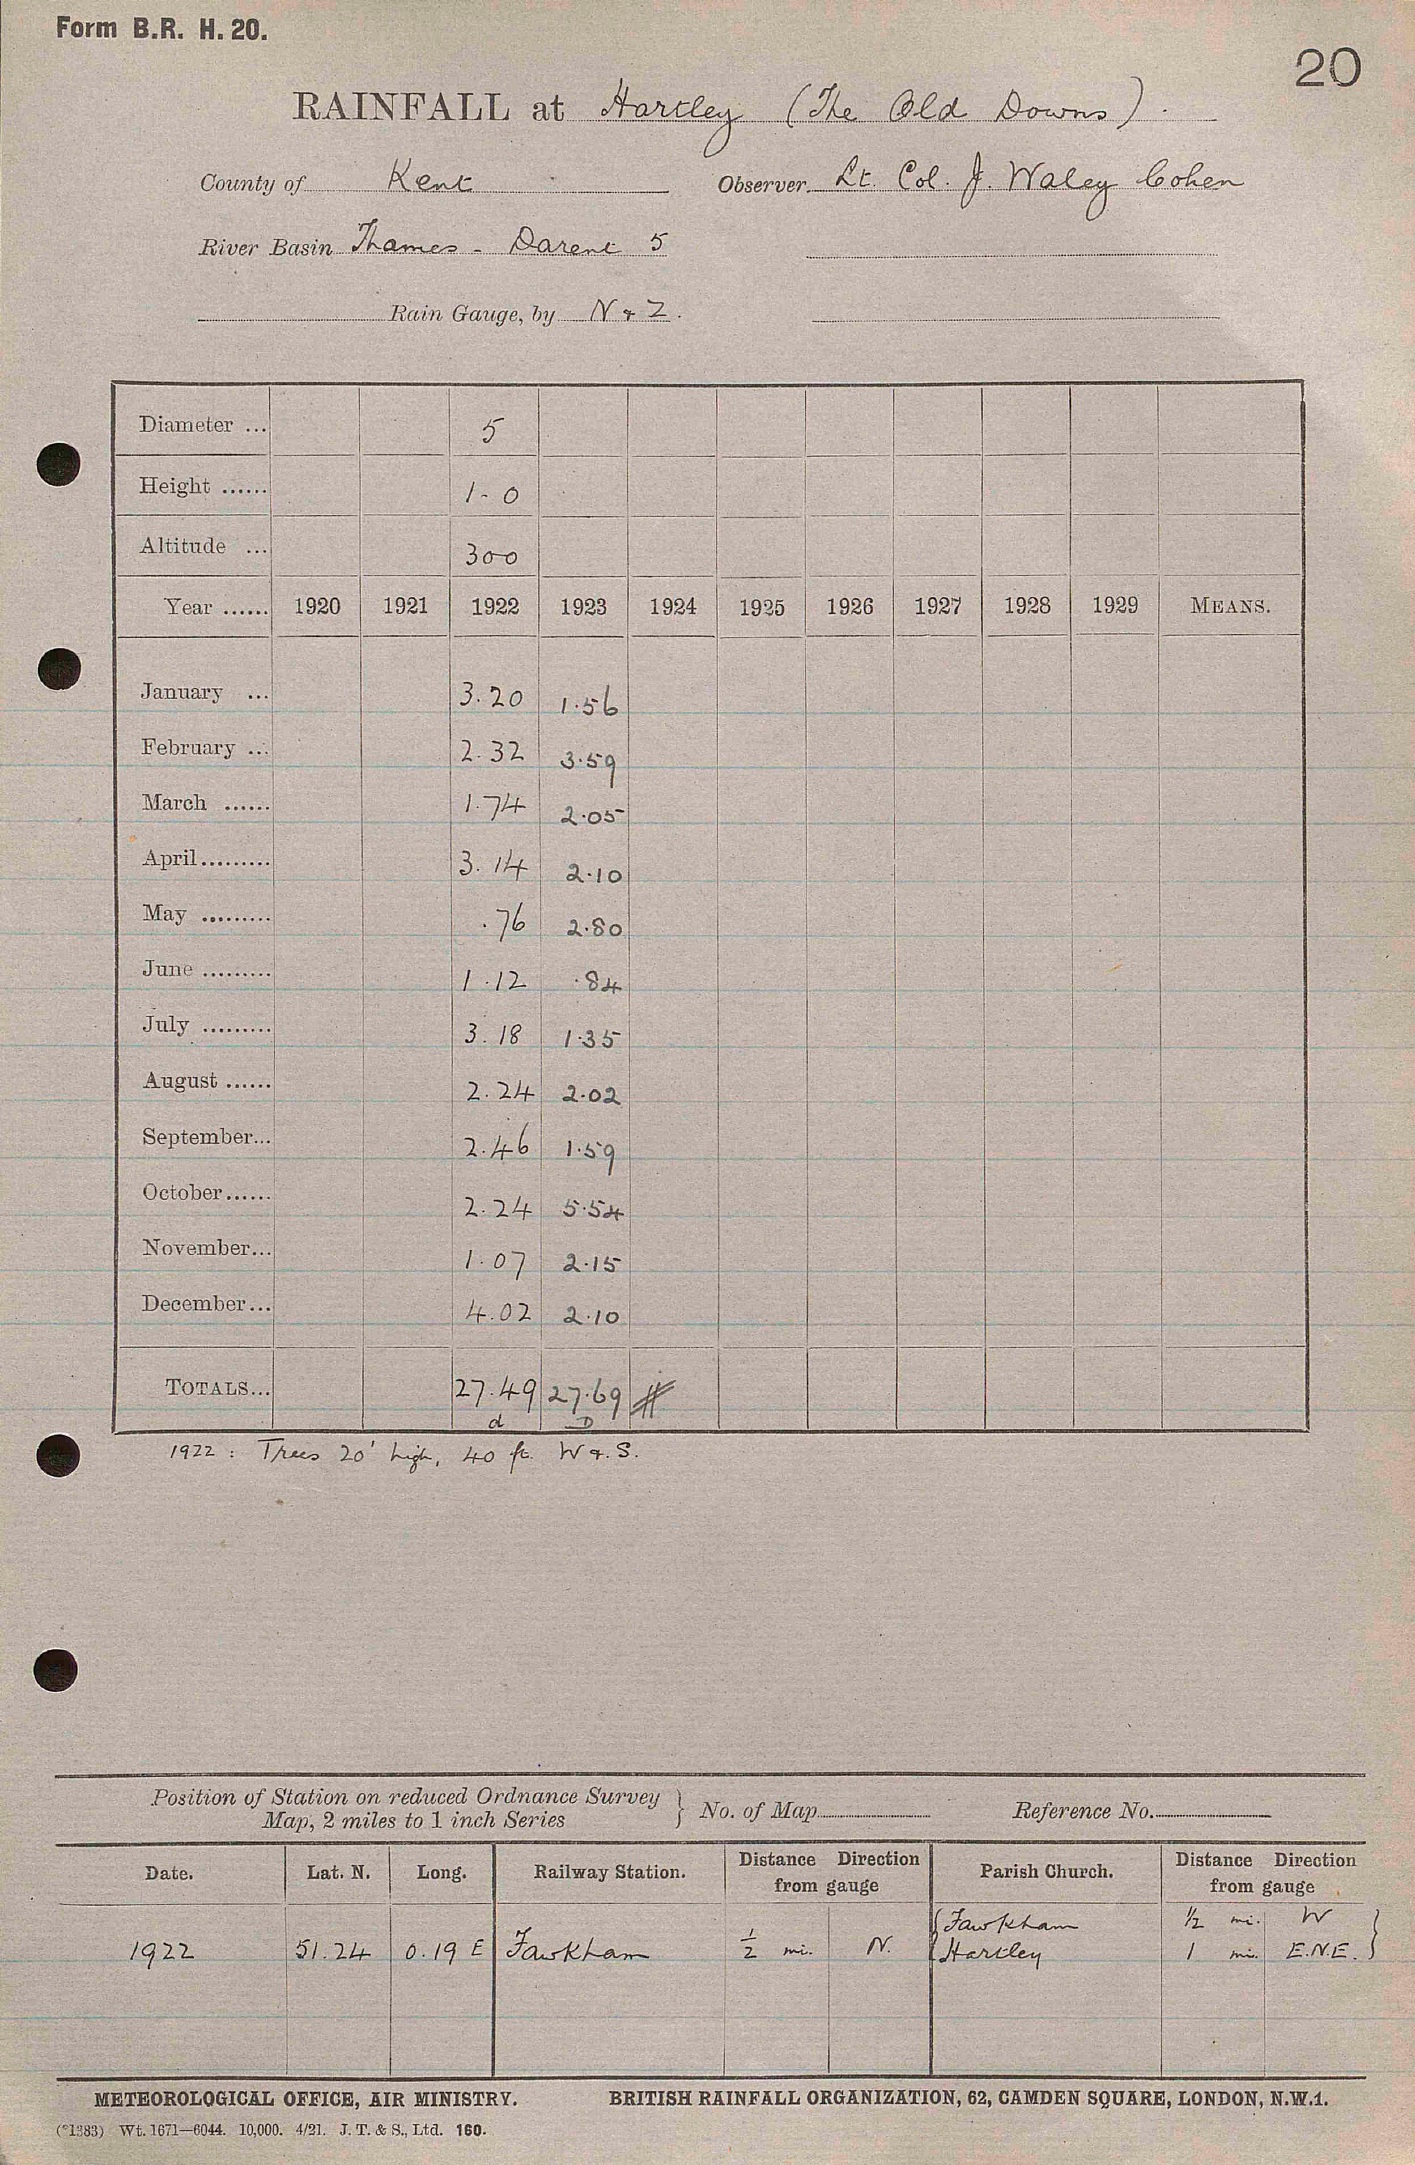 Form B.R. H. 20.
20
RAINFALL at Hartley (The Old Downs).
County of Kent Observer Lt. Col. J. Waley Cohen
River Basin Thames - Darent 5
Rain Gauge, by N & Z.
Diameter ... 5
Height ...... 1-0
Altitude ... 300
Year ...... 1920 1921 1922 1923 1924 1925 1926 1927 1928 1929 MEANS.
January ... 3.20 1.56
February ... 2.32 3.59
March ...... 1.74 2.05
April ......... 3.14 2.10
May ......... .76 2.80
June ......... 1.12 .84
July ......... 3.18 1.35
August ...... 2.24 2.02
September... 2.46 1.59
October...... 2.24 5.54
November... 1.07 2.15
December... 4.02 2.10
TOTALS... 27.49 27.69 #
d D
1922 : Trees 20' high, 40 ft. W & S.
Position of Station on reduced Ordnance Survey
Map, 2 miles to 1 inch Series } No. of Map Reference No.
Date. Lat. N. Long. Railway Station. Distance Direction from gauge Parish Church. Distance Direction from gauge
{ Fawkham ½ mi. W }
1922 51.24 0.19 E Fawkham ½ mi. N. { Hartley 1 mi. E.N.E. }
METEOROLOGICAL OFFICE, AIR MINISTRY. BRITISH RAINFALL ORGANIZATION, 62, CAMDEN SQUARE, LONDON, N.W.1.
(*1383) Wt. 1671—6044. 10,000. 4/21. J. T. & S., Ltd. 160.